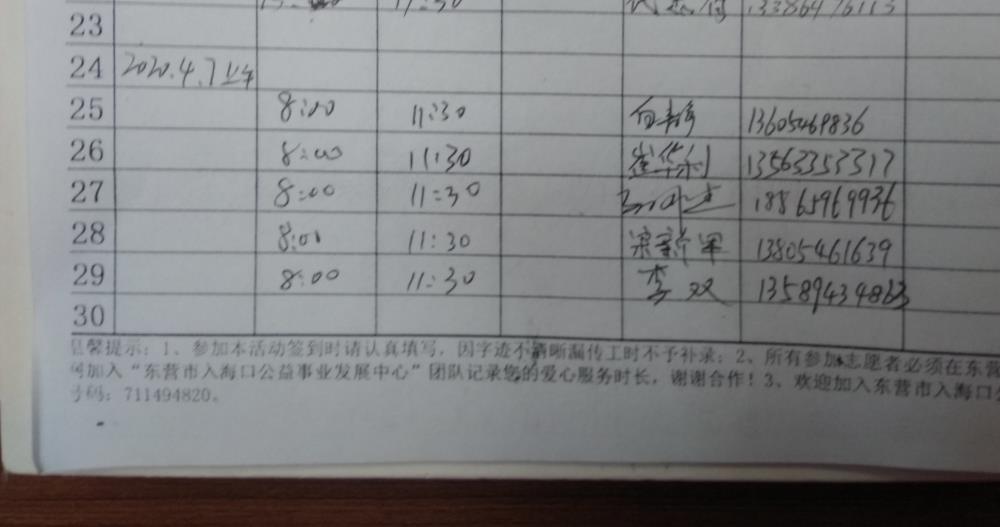 11:30 13386476113
23
24 2020.4.7上午
25 8:00 11:30 白静 13605469836
26 8:00 11:30 崔华利 13563353317
27 8:00 11:30 18865969936
28 8:00 11:30 梁新军 13805461639
29 8:00 11:30 李双 13589434863
30
温馨提示：1、参加本活动签到时请认真填写，因字迹不清晰漏传工时不予补录；2、所有参加志愿者必须在东营
加入“东营市入海口公益事业发展中心”团队记录您的爱心服务时长，谢谢合作！3、欢迎加入东营市入海口公
号码：711494820。